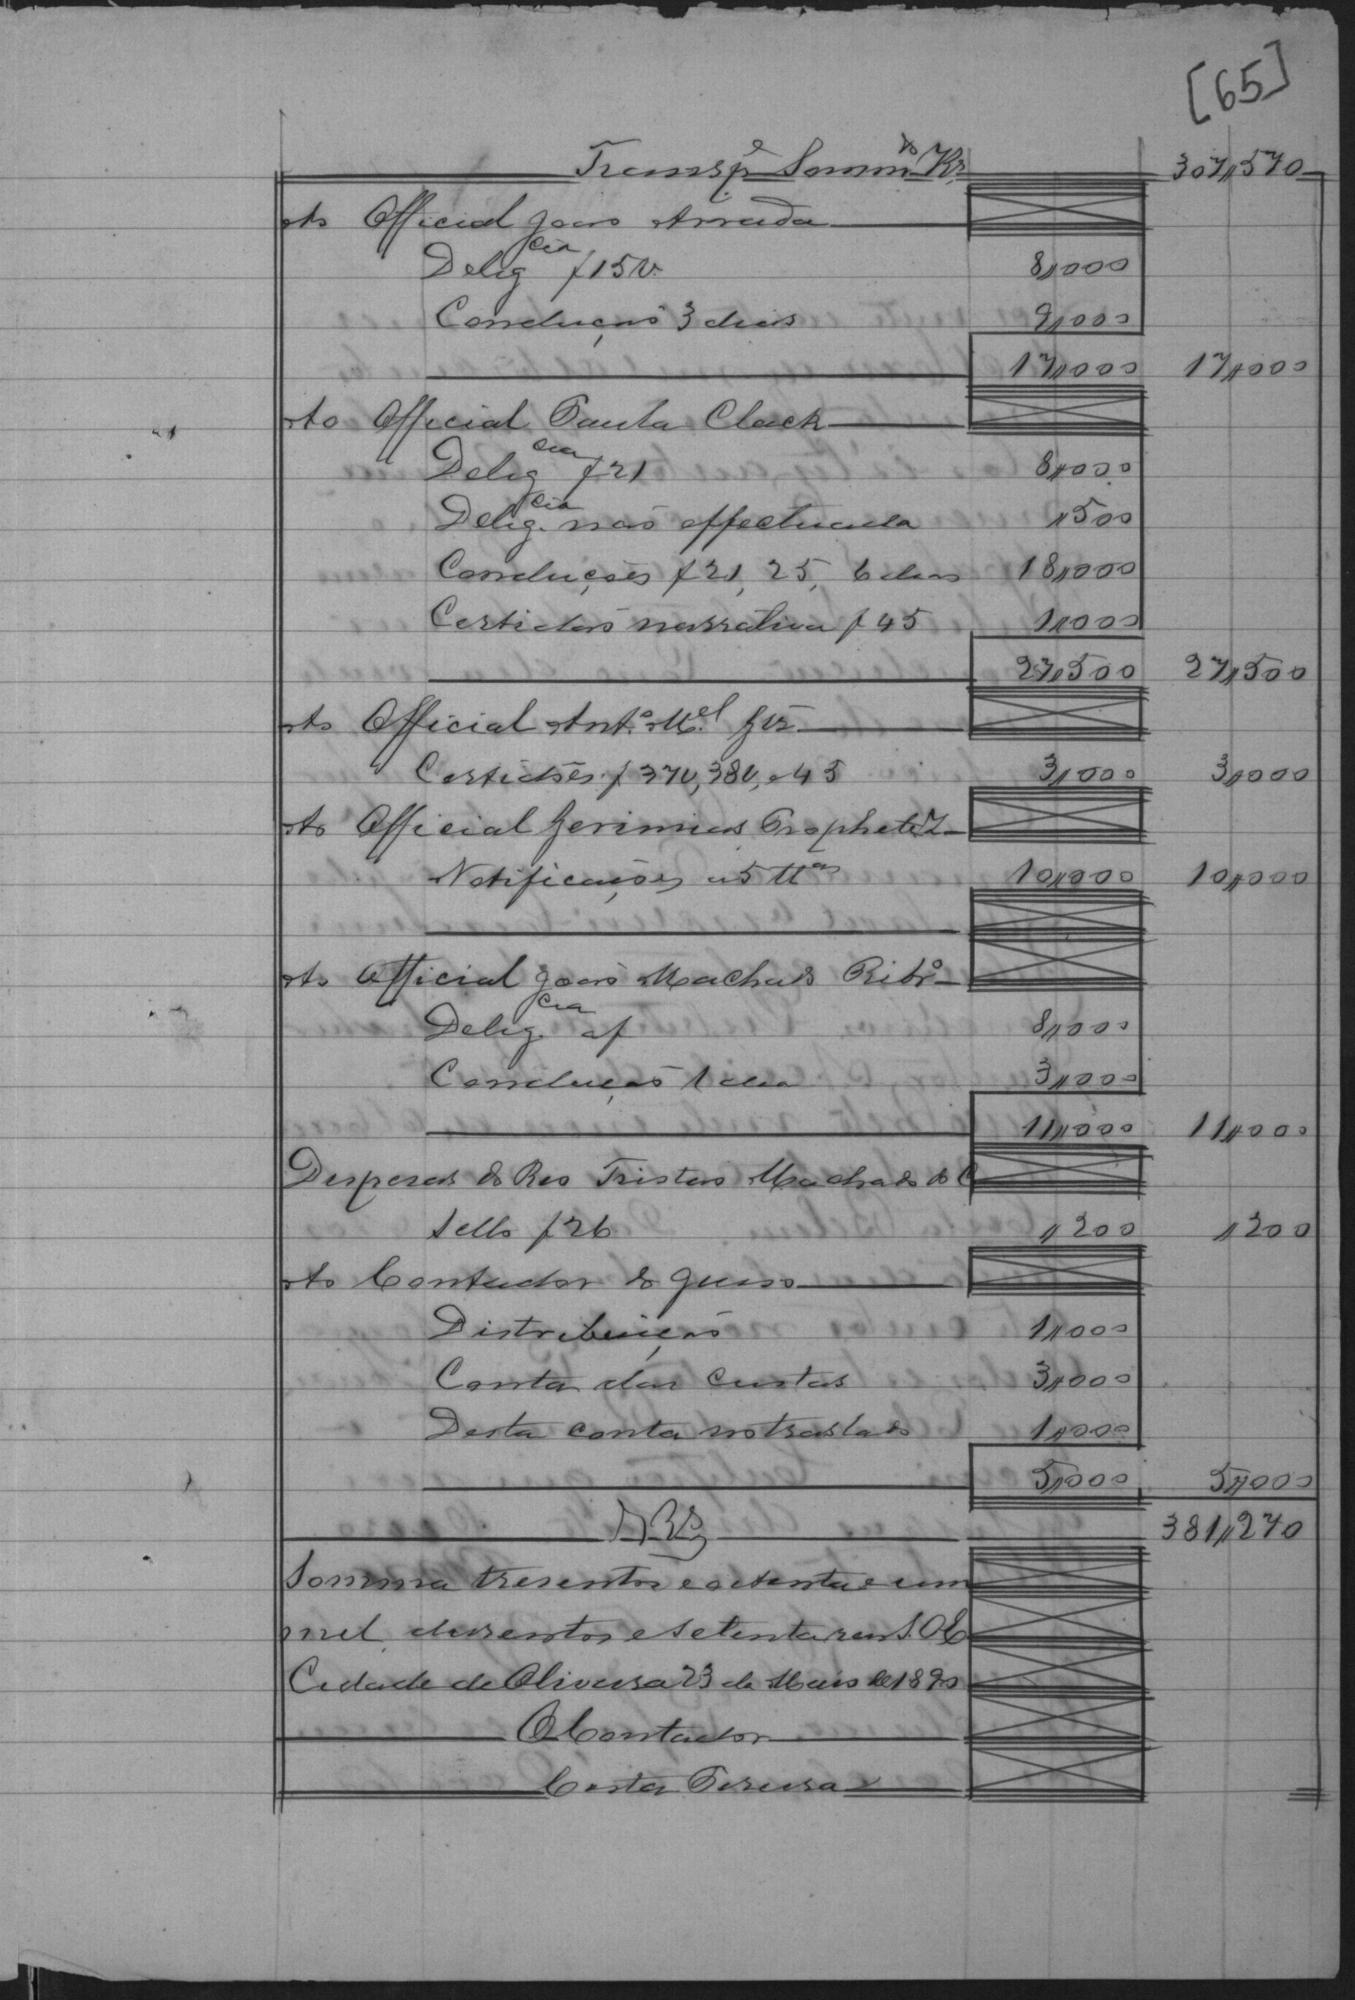 [65]
Transp.e Somm.do Rs 307,,570
Ao Official João Arruda
Delig.cia f 15 v. 8,,000
Conducção 3 dias 9,,000
17,,000 17,,000
Ao Official Paula Clack
Delig.cia f 21 8,,000
Delig.cia não effectuada ,,500
Conducções f 21, 25, 6 dias 18,,000
Certidão narrativa f 45 1,,000
27,,500 27,,500
Ao Official Ant.o M.el
Certidões f 37v, 38v, e 45 3,,000 3,,000
Ao Official Jerimias Propheta
Notificações a 5 tt.as 10,,000 10,,000
Ao Official João Machado Ribr.o
Delig.cia af 8,,000
Conducção 1 dia 3,,000
11,,000 11,,000
Despesas do Reo Tristão Machado de C
Sello f 26 ,,200 ,,200
Ao Contador do Juiso
Distribuição 1,,000
Conta das custas 3,,000
Desta conta no traslado 1,,000
5,,000 5,,000
Rs 381,,270
Somma tresentos e oitenta e um
mil, dusentos e setenta reis S.O.E
Cidade de Oliveira 23 de Maio de 1890
O Contador
Costa Pereira